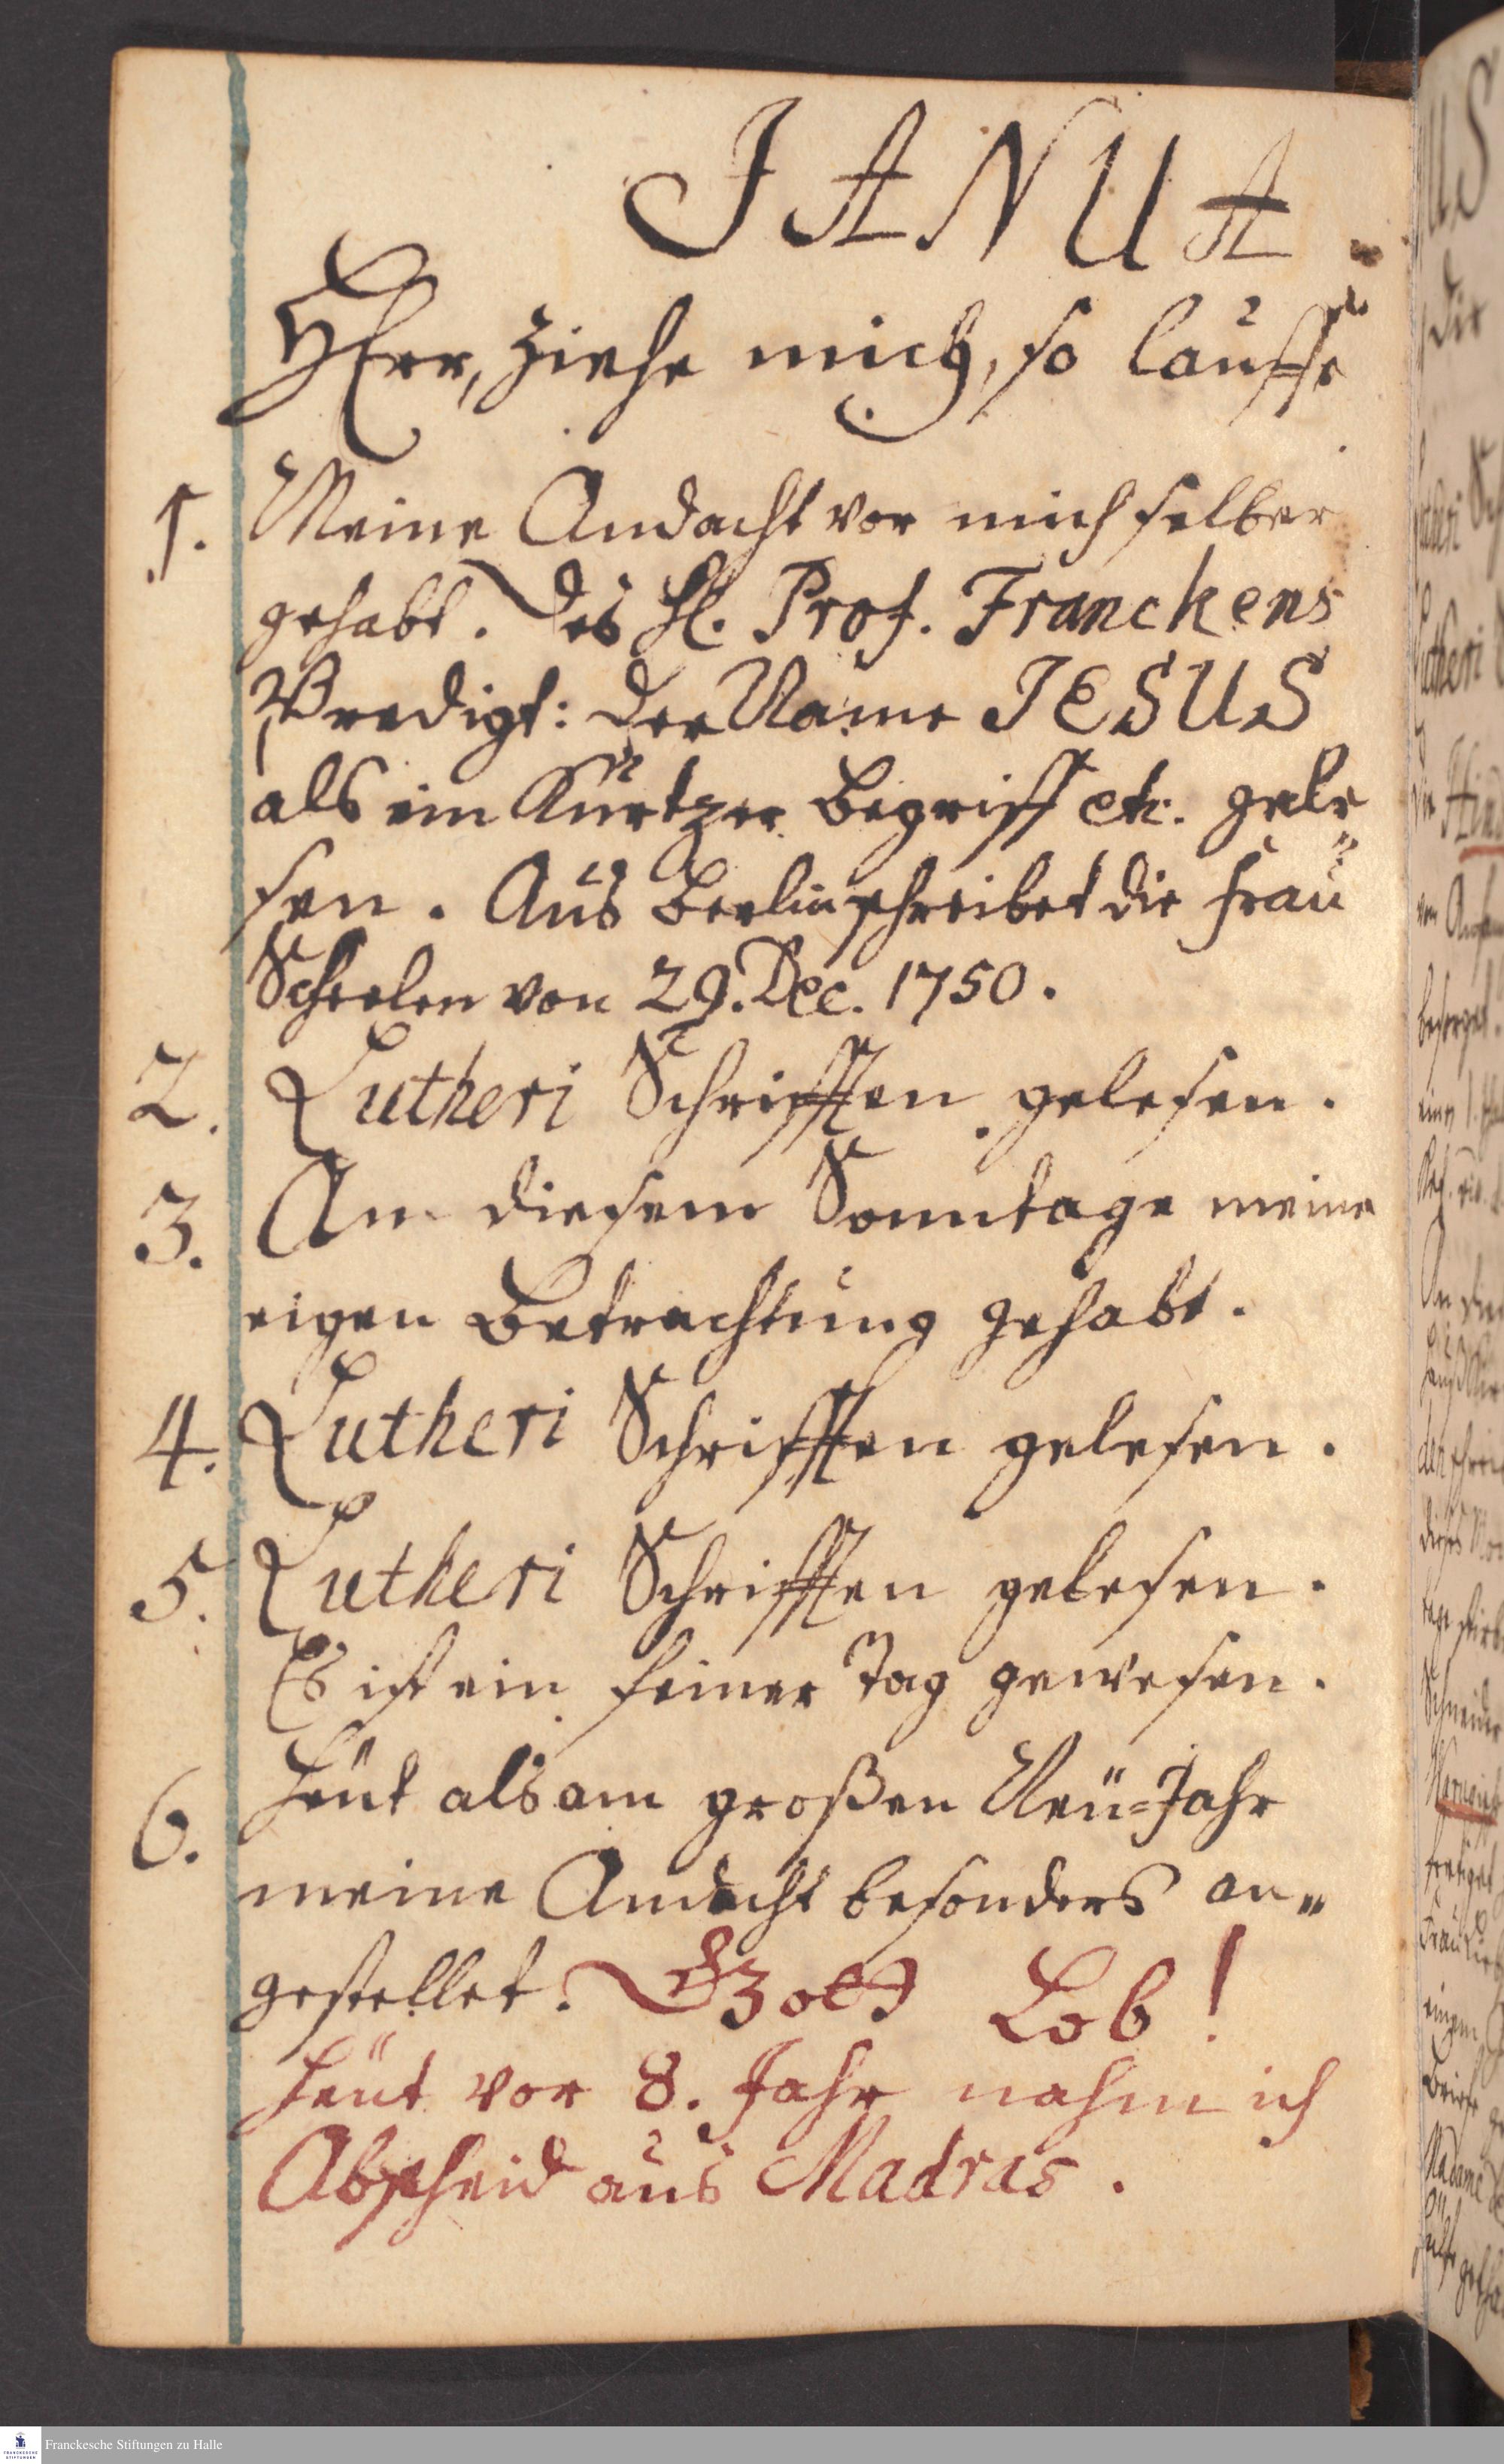 JANUA
HErr, ziehe mich, so lauffe
1. Meine Andacht vor mich selber
gehabt. Des H. Prof. Franckens
Predigt: der Name JESUS
als ein Kurtzer Begriff etc. gele-
sen. Aus Berlin schreibet die Frau
Scheelen von 29. Dec. 1750.
2. Lutheri Schrifften gelesen.
3. An diesem Sonntage meine
eigen Betrachtung gehabt.
4. Lutheri Schrifften gelesen.
5. Lutheri Schrifften gelesen.
Es ist ein feiner Tag gewesen.
6. Heut als am großen Neu-Jahr
meine Andacht besonders an-
gestellet. Gott Lob!
Heut vor 8. Jahr nahm ich
Abscheid aus Madras.
Franckesche Stiftungen zu Halle